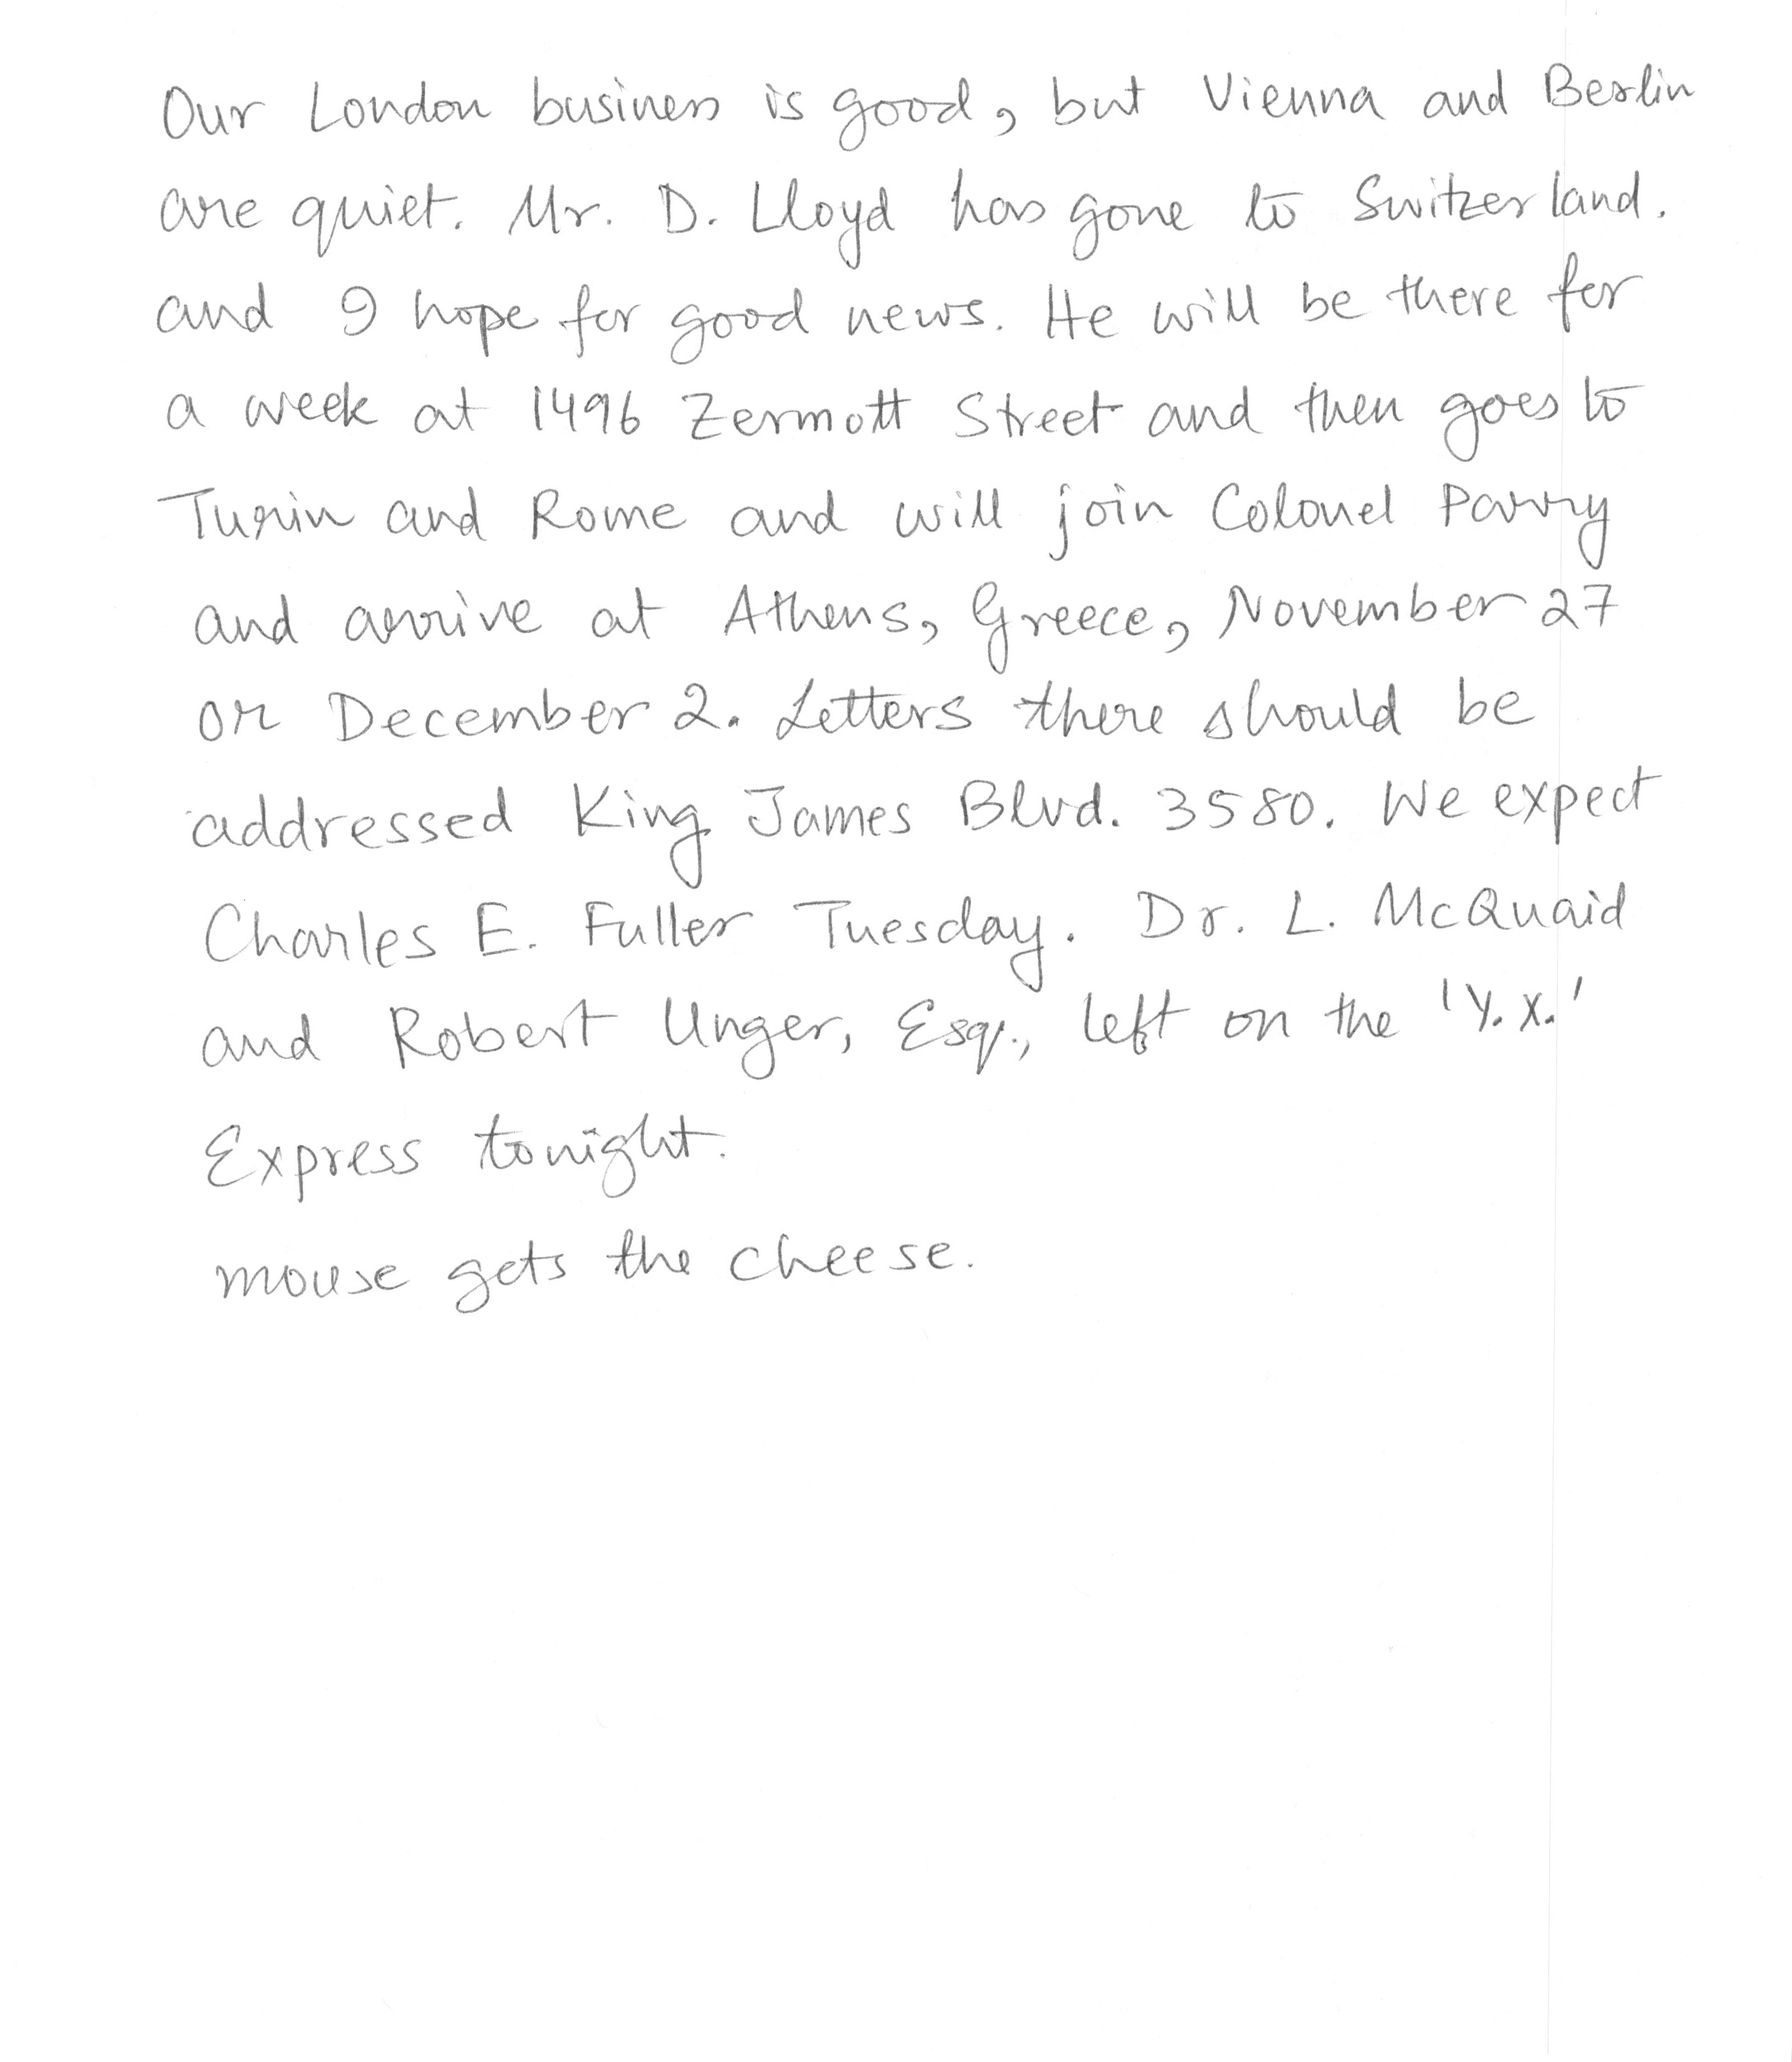 Our London business is good, but Vienna and Berlin
are quiet. Mr. D. Lloyd has gone to Switzerland.
and I hope for good news. He will be there for
a week at 1496 Zermott Street and then goes to
Turin and Rome and will join Colonel Parry
and arrive at Athens, Greece, November 27
or December 2. Letters there should be
addressed King James Blvd. 3580. We expect
Charles E. Fuller Tuesday. Dr. L. McQuaid
and Robert Unger, Esq., left on the 'Y.X.'
Express tonight.
mouse gets the cheese.